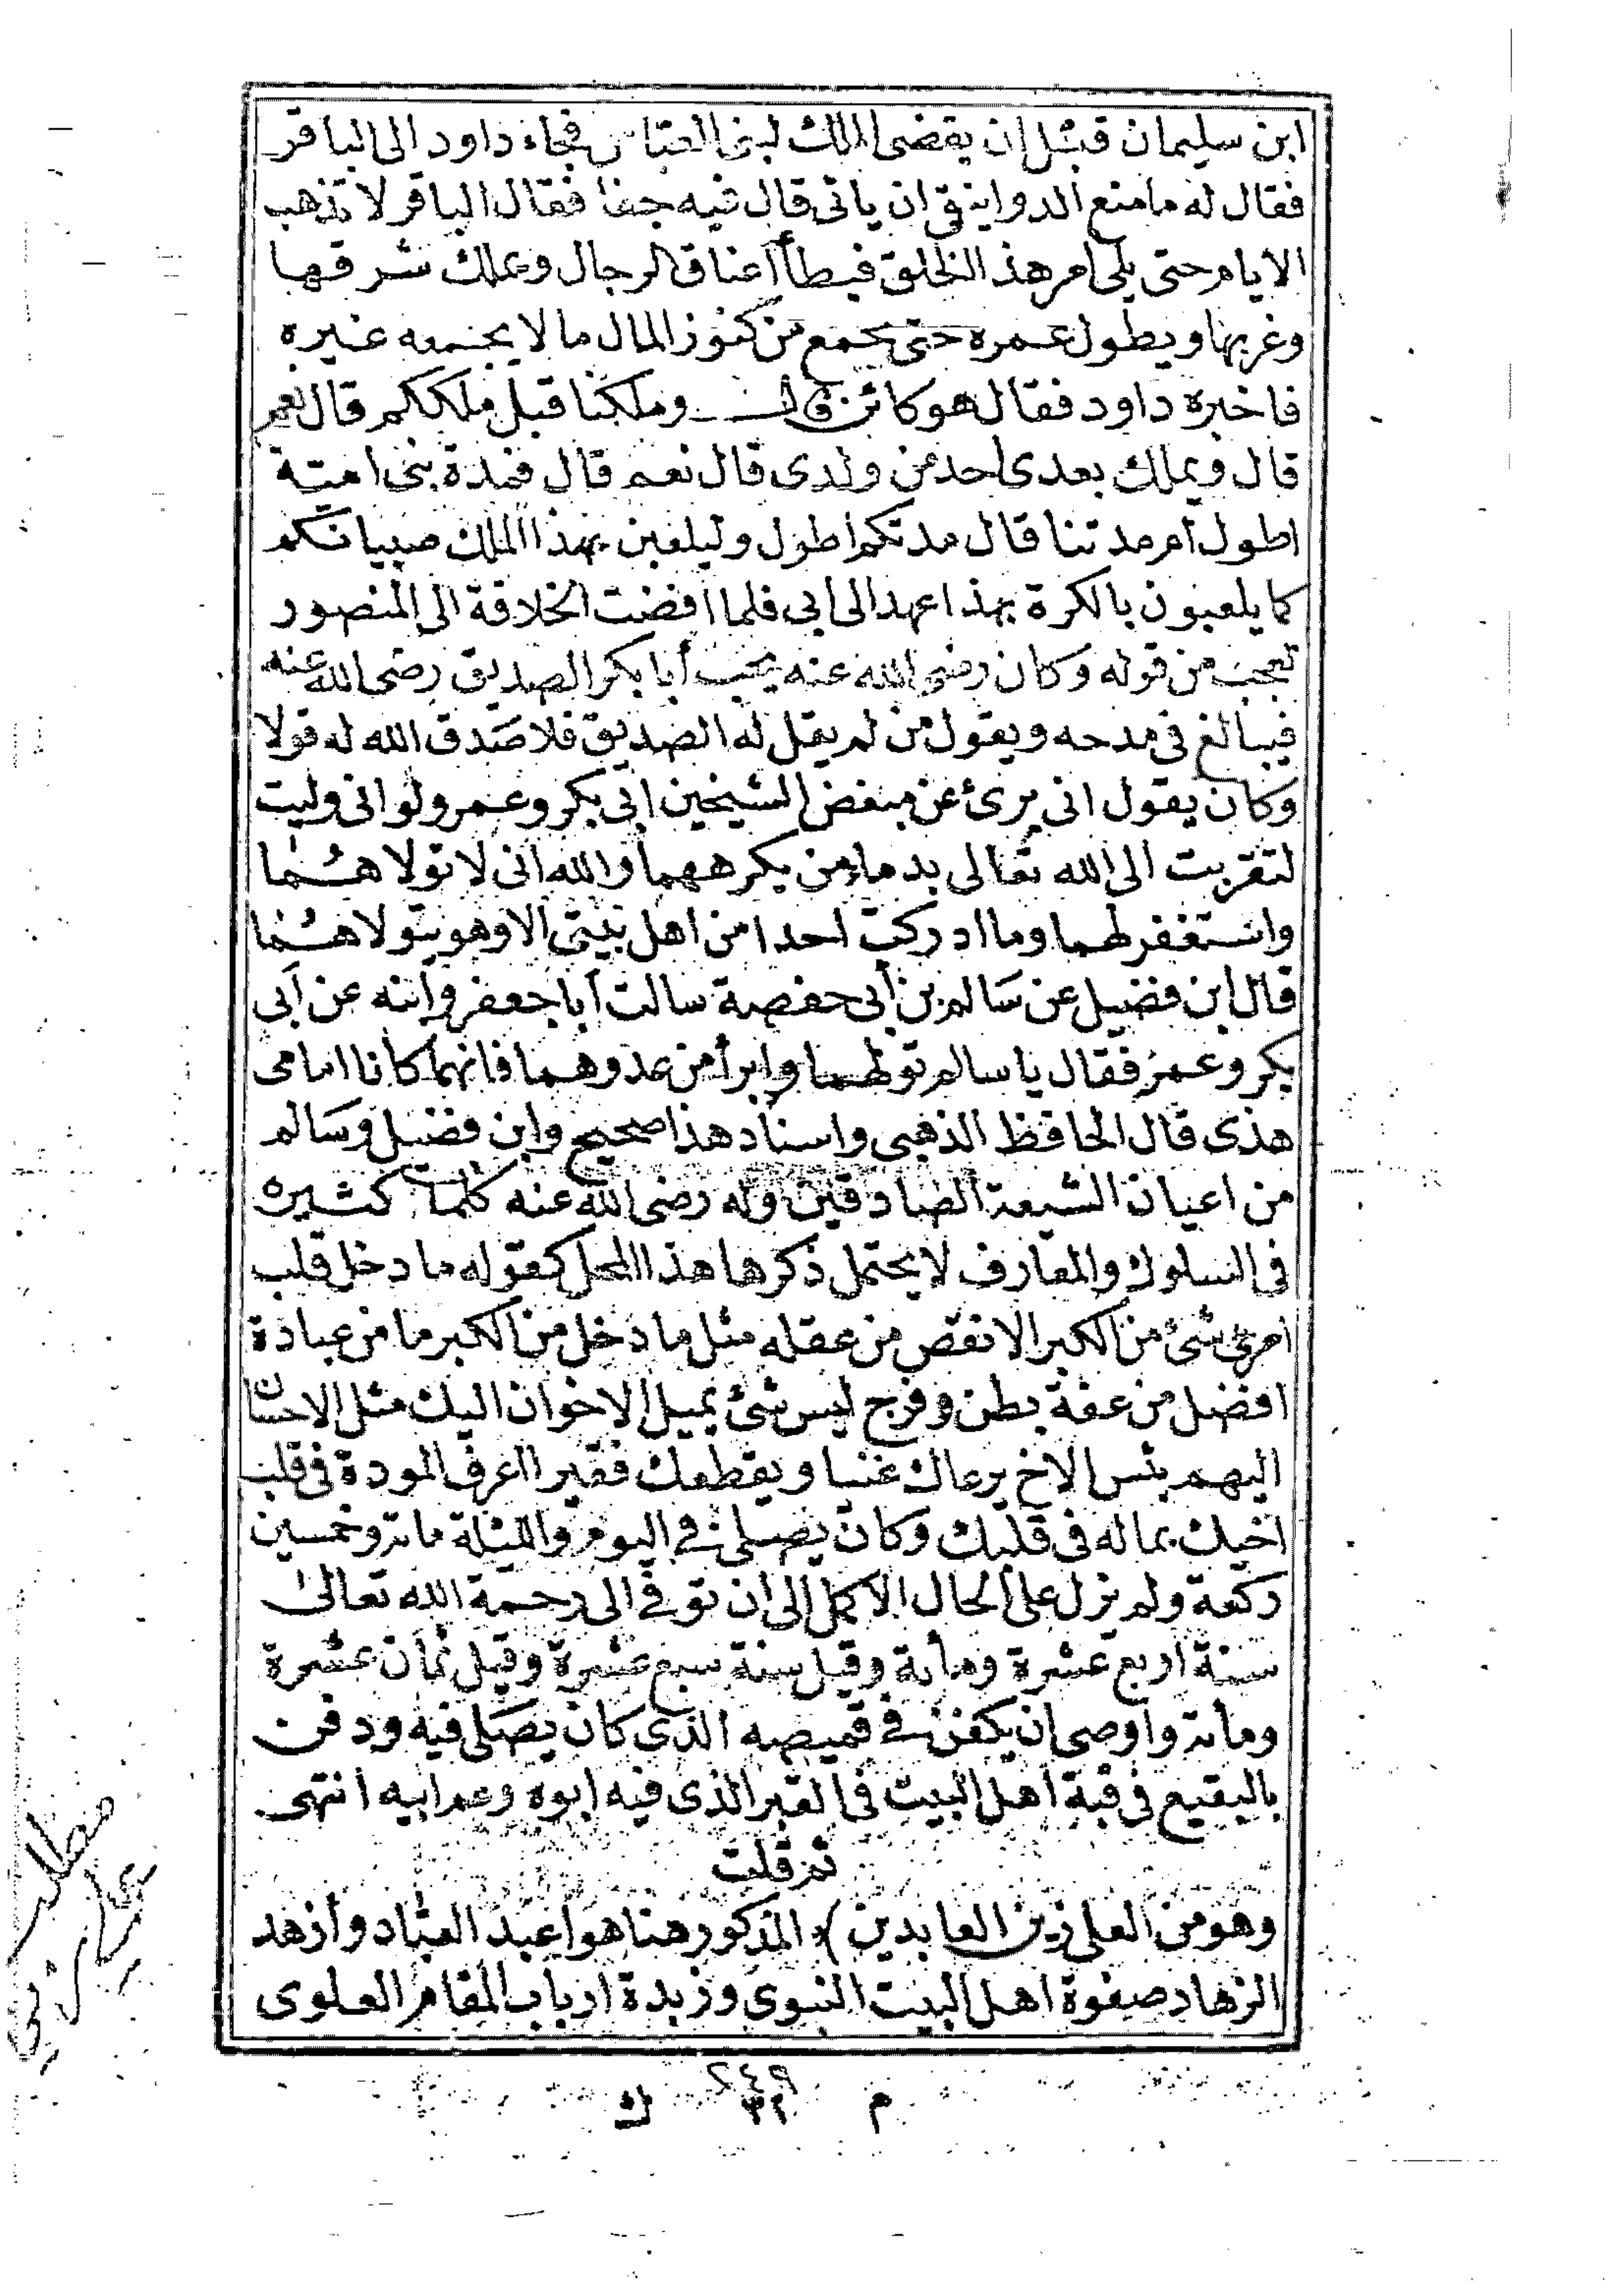 ابن سليمان قبل ان يفضى الملك لبنى العباس فجاء داود الى الباقر
فقال له ما منع الدوانيقى ان ياتى قال فيه جفا فقال الباقر لا تذهب
الايام حتى يلى امر هذ الخلق فيطأ أعناق الرجال ويملك شرقها
وغربها ويطول عمره حتى يجمع من كنوز المال ما لا يجمعه غيره
فاخبره داود فقال هو كائن قال وملكنا قبل ملككم قال نعم
قال ويملك بعدى احد من ولدى قال نعم قال فمدة بنى امية
اطول ام مدتنا قال مدتكم اطول وليلعبن بهذا الملك صبيانكم
كما يلعبون بالكرة بهذا عهد الى ابى فلما افضت الخلافة الى المنصور
تعجب من قوله وكان رضى الله عنه يحب أبا بكر الصديق رضى الله عنه
فيبالغ فى مدحه ويقول من لم يقل له الصديق فلا صدق الله له قولا
وكان يقول انى برئ عن مبغض الشيخين ابى بكر وعمر ولو انى وليت
لتقربت الى الله تعالى بدماء من يكرههما والله انى لا تولاهما
واستغفر لهما وما ادركت احدا من اهل بيتى الا وهو يتولاهما
قال ابن فضيل عن سالم بن أبى حفصة سالت أبا جعفر وابنه عن أبى
بكر وعمر فقال يا سالم تولهما وابرأ من عدوهما فانهما كانا امامى
هذى قال الحافظ الذهبى واسناد هذا صحيح وابن فضيل وسالم
من اعيان الشيعة الصادقين وله رضى الله عنه كلمات كثيره
فى السلوك والمعارف لا يحتمل ذكرها هذا المحل كقوله ما دخل قلب
امرئ شئ من الكبر الا نقص من عقله مثل ما دخل من الكبر ما من عبادة
افضل من عفة بطن وفرج ليس شئ يميل الاخوان اليك مثل الاحسان
اليهم بئس الاخ يرعاك غنيا ويقطعك فقيرا اعرف المودة فى قلب
اخيك بماله فى قلبك وكان يصلى فى اليوم والليلة مائة وخمسين
ركعة ولم يزل على الحال الاكمل الى ان توفى الى رحمة الله تعالى
سنة اربع عشرة ومأية وقيل سنة سبع عشرة وقيل ثمان عشرة
ومائة واوصى ان يكفن فى قميصه الذى كان يصلى فيه ودفن
بالبقيع فى قبة اهل البيت فى القبر الذى فيه ابوه وعم ابيه انتهى
ثم قلت
وهو من العلى زين العابدين) المذكور هنا هو اعبد العباد وازهد
الزهاد صفوة اهل البيت النبوى وزبدة ارباب المقام العلوى
مطلب
٢٤٩
م ٣٢ ك